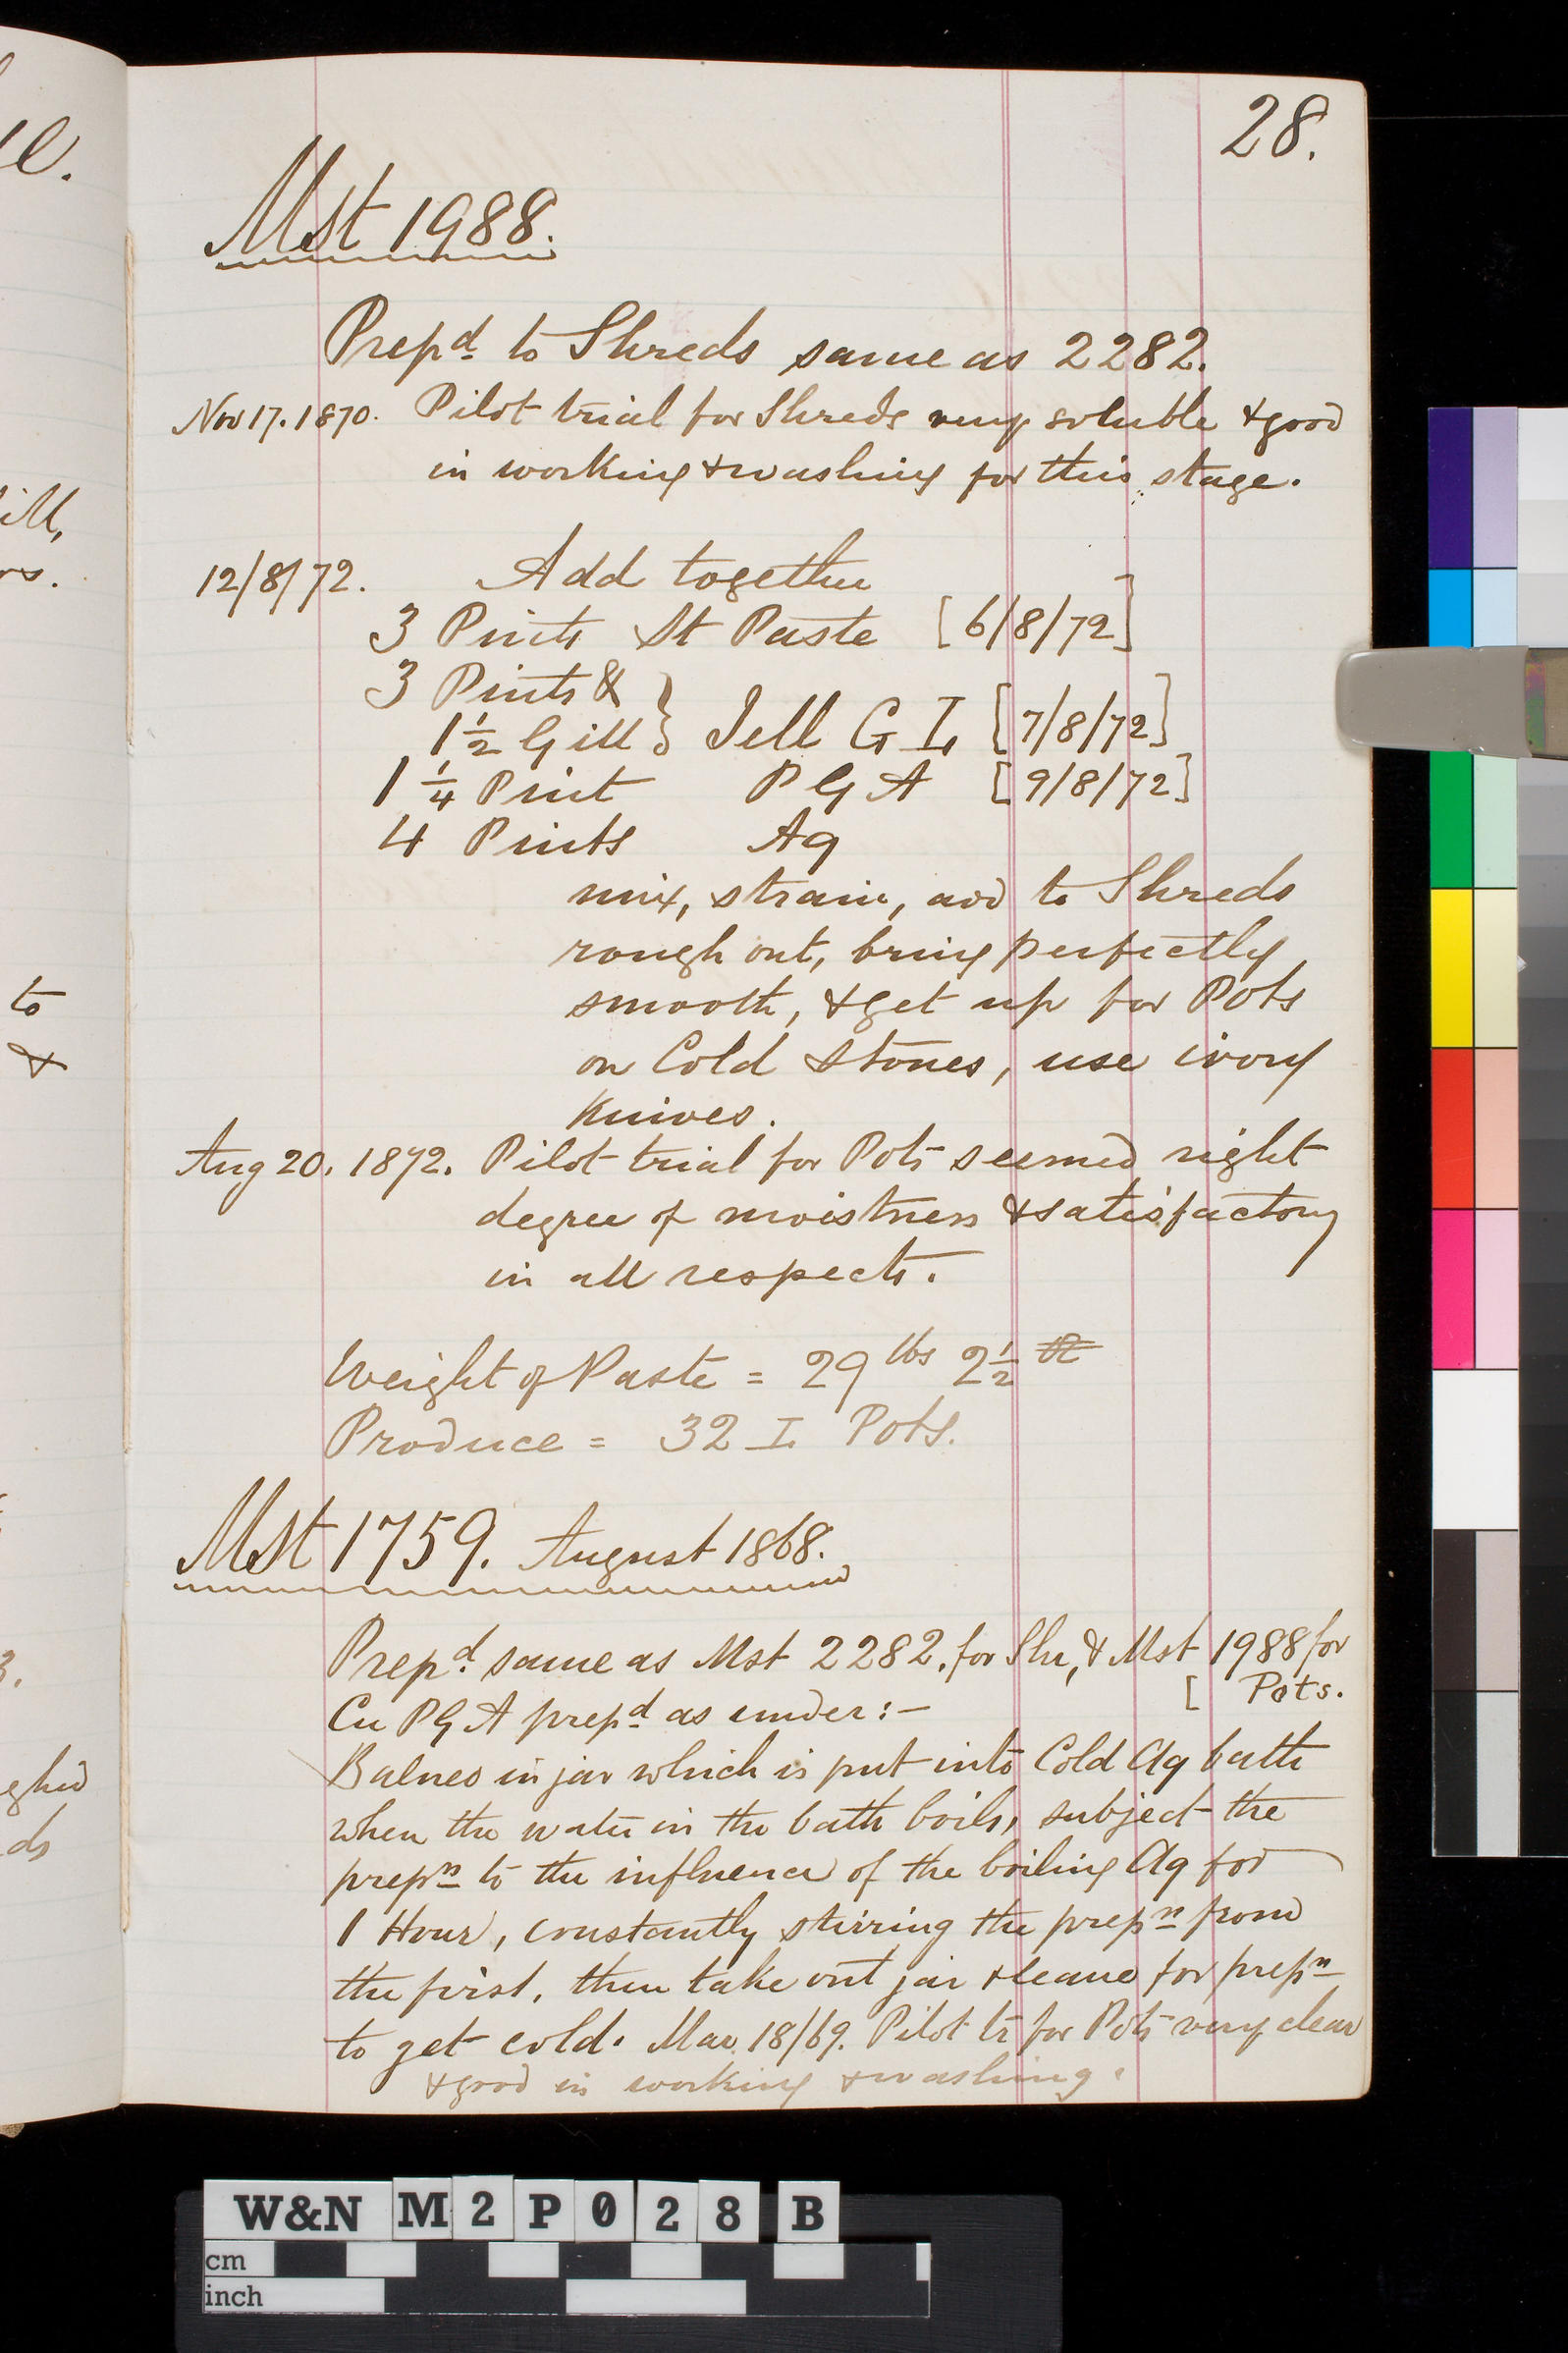 28.
Mst 1988.
Prepd to Shreds same as 2282.
Nov 17. 1870. Pilot trial for Shreds very soluble & good
in working & washing for this stage.
12/8/72. Add together
3 Pints St Paste [6/8/72]
3 Pints &
1½ Gill } Jell G I [7/8/72]
1 ¼ Pint P G A [9/8/72]
4 Pints Aq
mix, strain, add to Shreds
rough out, bring perfectly
smooth, & get up for Pots
on Cold Stones, use ivory
Knives.
Aug 20. 1872. Pilot trial for Pots seemed right
degree of moistness & satisfactory
in all respects.
Weight of Paste = 29 lbs 2½
Produce = 32 I Pots.
Mst 1759. August 1868.
Prepd same as Mst 2282. for Shr, & Mst 1988 for
[ Pots.
Cu P G A prepd as under:-
Balneo in jar which is put into Cold Aq bath
when the water in the bath boils, subject the
prepn to the influence of the boiling Aq for
1 Hour, constantly stirring the prepn from
the first, then take out jar & leave for prepn
to get cold. Mar 18/69. Pilot tr for Pots very clear
& good in working & washing.
ill,
to
&
ghed
ds
W&N M2P028 B
cm
inch